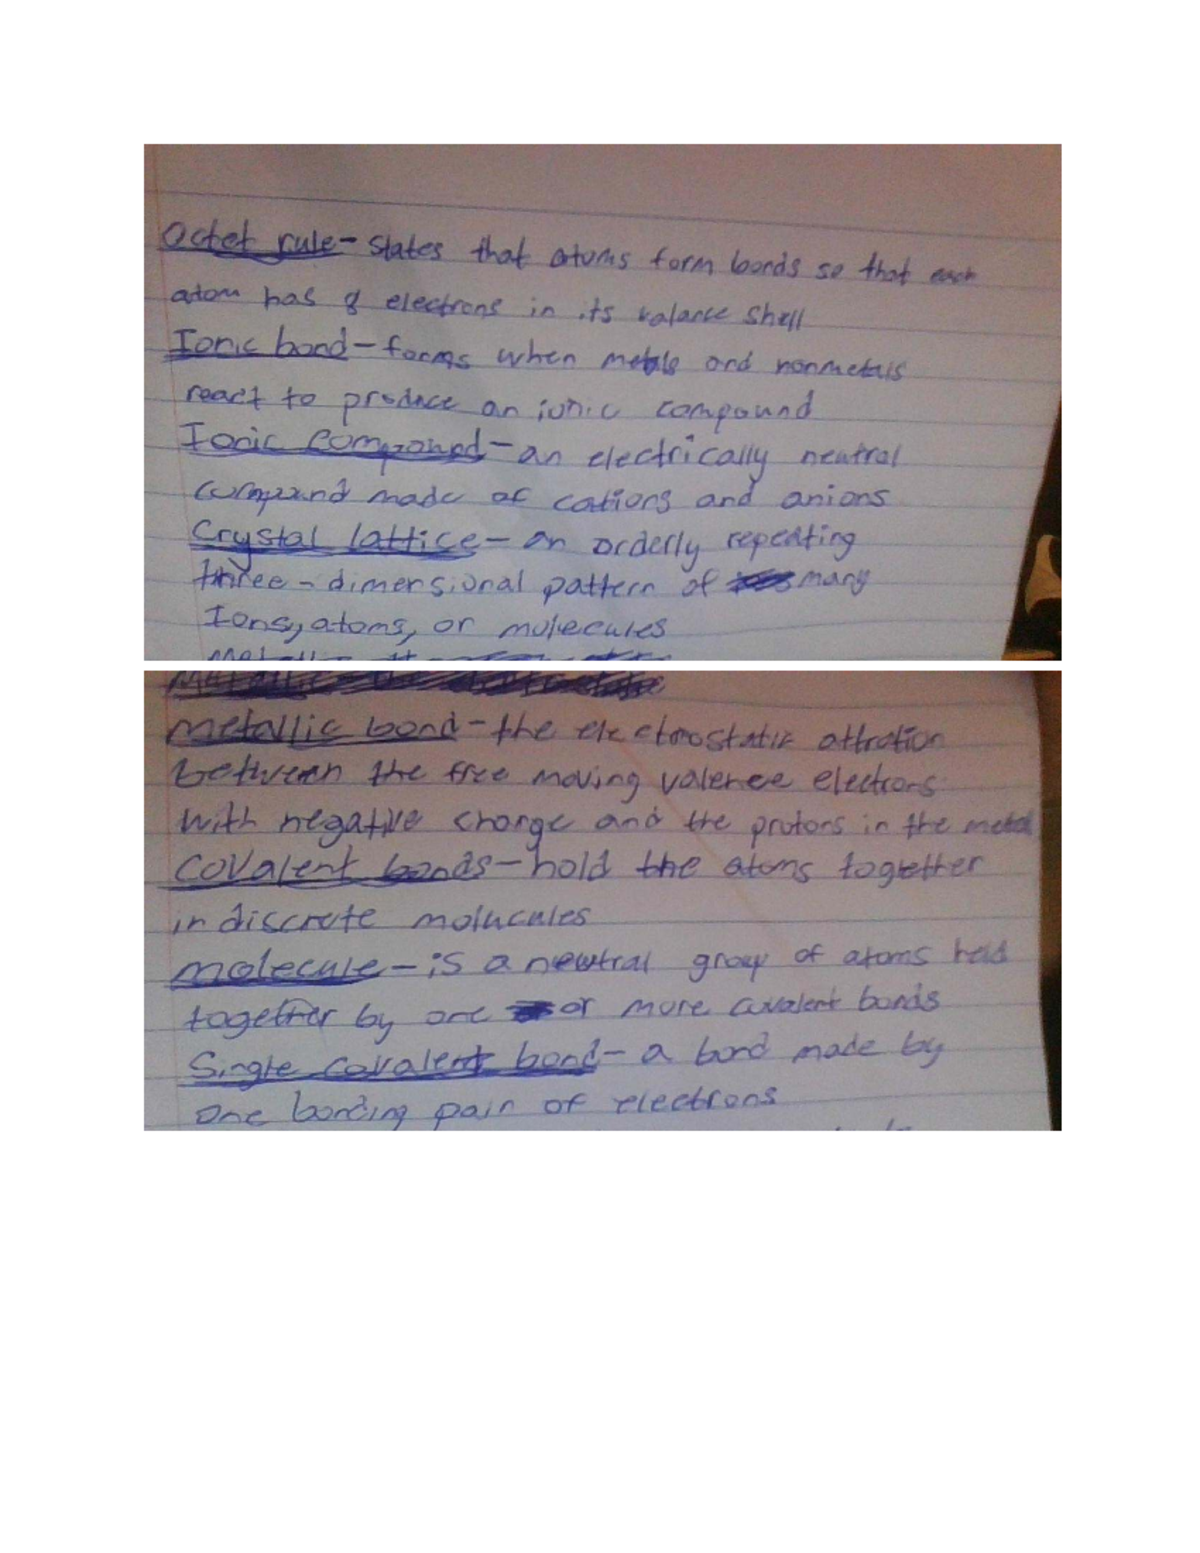 Octet rule- states that atoms form bonds so that each
atom has 8 electrons in its valance shell
Ionic bond- forms when metals and nonmetals
react to produce an ionic compound
Ionic compound- an electrically neutral
compound made of cations and anions
Crystal lattice- an orderly repeating
three-dimensional pattern of many
Ions, atoms, or molecules
metallic bond- the electrostatic attration
between the free moving valence electrons
with negative charge and the protons in the metal
Covalent bonds- hold the atoms together
in discrete molucules
molecule- is a newtral group of atoms held
together by one or more covalent bonds
Single covalent bond- a bond made by
one bonding pair of electrons